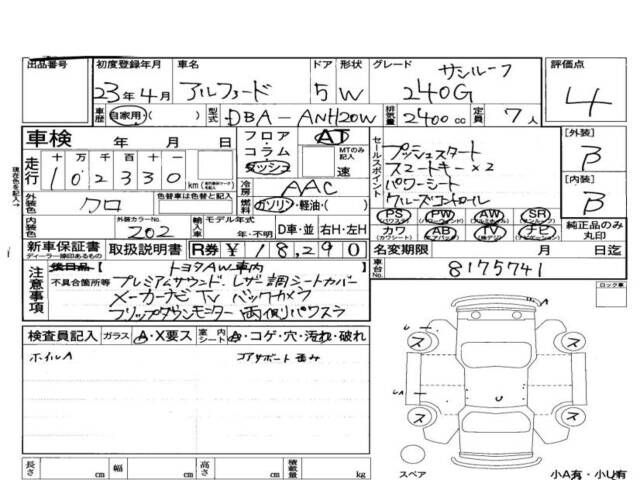 出品番号 初度登録年月 車名 ドア 形状 グレード 評価点
サンルーフ
23年4月 アルファード 5 W 240G 4
車歴 自家用・( ) 型式 DBA-ANH20W 排気量 2400cc 定員 7人
車検 年 月 日
フロア・コラム・ダッシュ AT
MTのみ記入 速
走行 十万千百十一
102330 km
冷房 AAC
燃料 ガソリン・軽油・( )
現在色を記入→
外装色 クロ 色替車は色替と記入
内装色 外装カラーNo. 202
輸入車 モデル年式 年・不明 D車・並 右H・左H
セールスポイント
プッシュスタート
スマートキー×2
パワーシート
クルーズコントロール
PS PW AW SR
カワ AB TV ナビ
[外装] B
[内装] B
純正品のみ丸印
新車保証書 取扱説明書 R券 ¥18,290
ディーラー捺印あるもの
名変期限 月 日迄
車台No. 8175741
注意事項 不具合箇所等
後日品【トヨタAW車内】
プレミアムサウンド レザー調シートカバー
メーカーナビTV バックカメラ
フリップダウンモニター 両側パワスラ
ロック車
検査員記入 ガラス A・X要ス 室内シート A・コゲ・穴・汚れ・破れ
ホイルA コアサポート歪み
ス ス
ス ス
UA A
U
スペア 小A有・小U有
長さ cm 幅 cm 高さ cm 積載量 kg